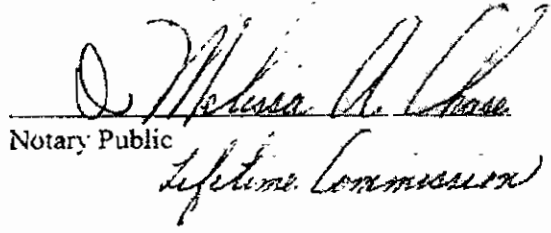 D Melissa A. Chase
Notary Public
Lifetime Commission